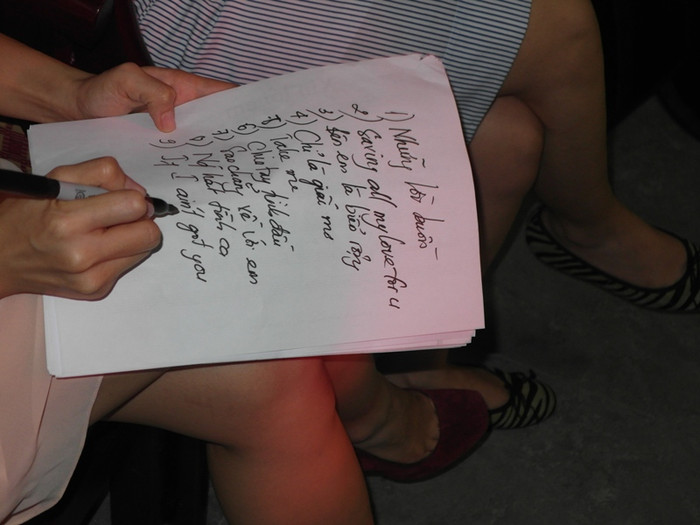 1) Những lời buồn
2) Saving all my love for u
3) Bên em là biển rộng
4) Chỉ là giấc mơ
5) Take me
6) Chuyện tình đầu
7) Sao chẳng về với em
8) Nữ hát tình ca
9) If I ain't got you